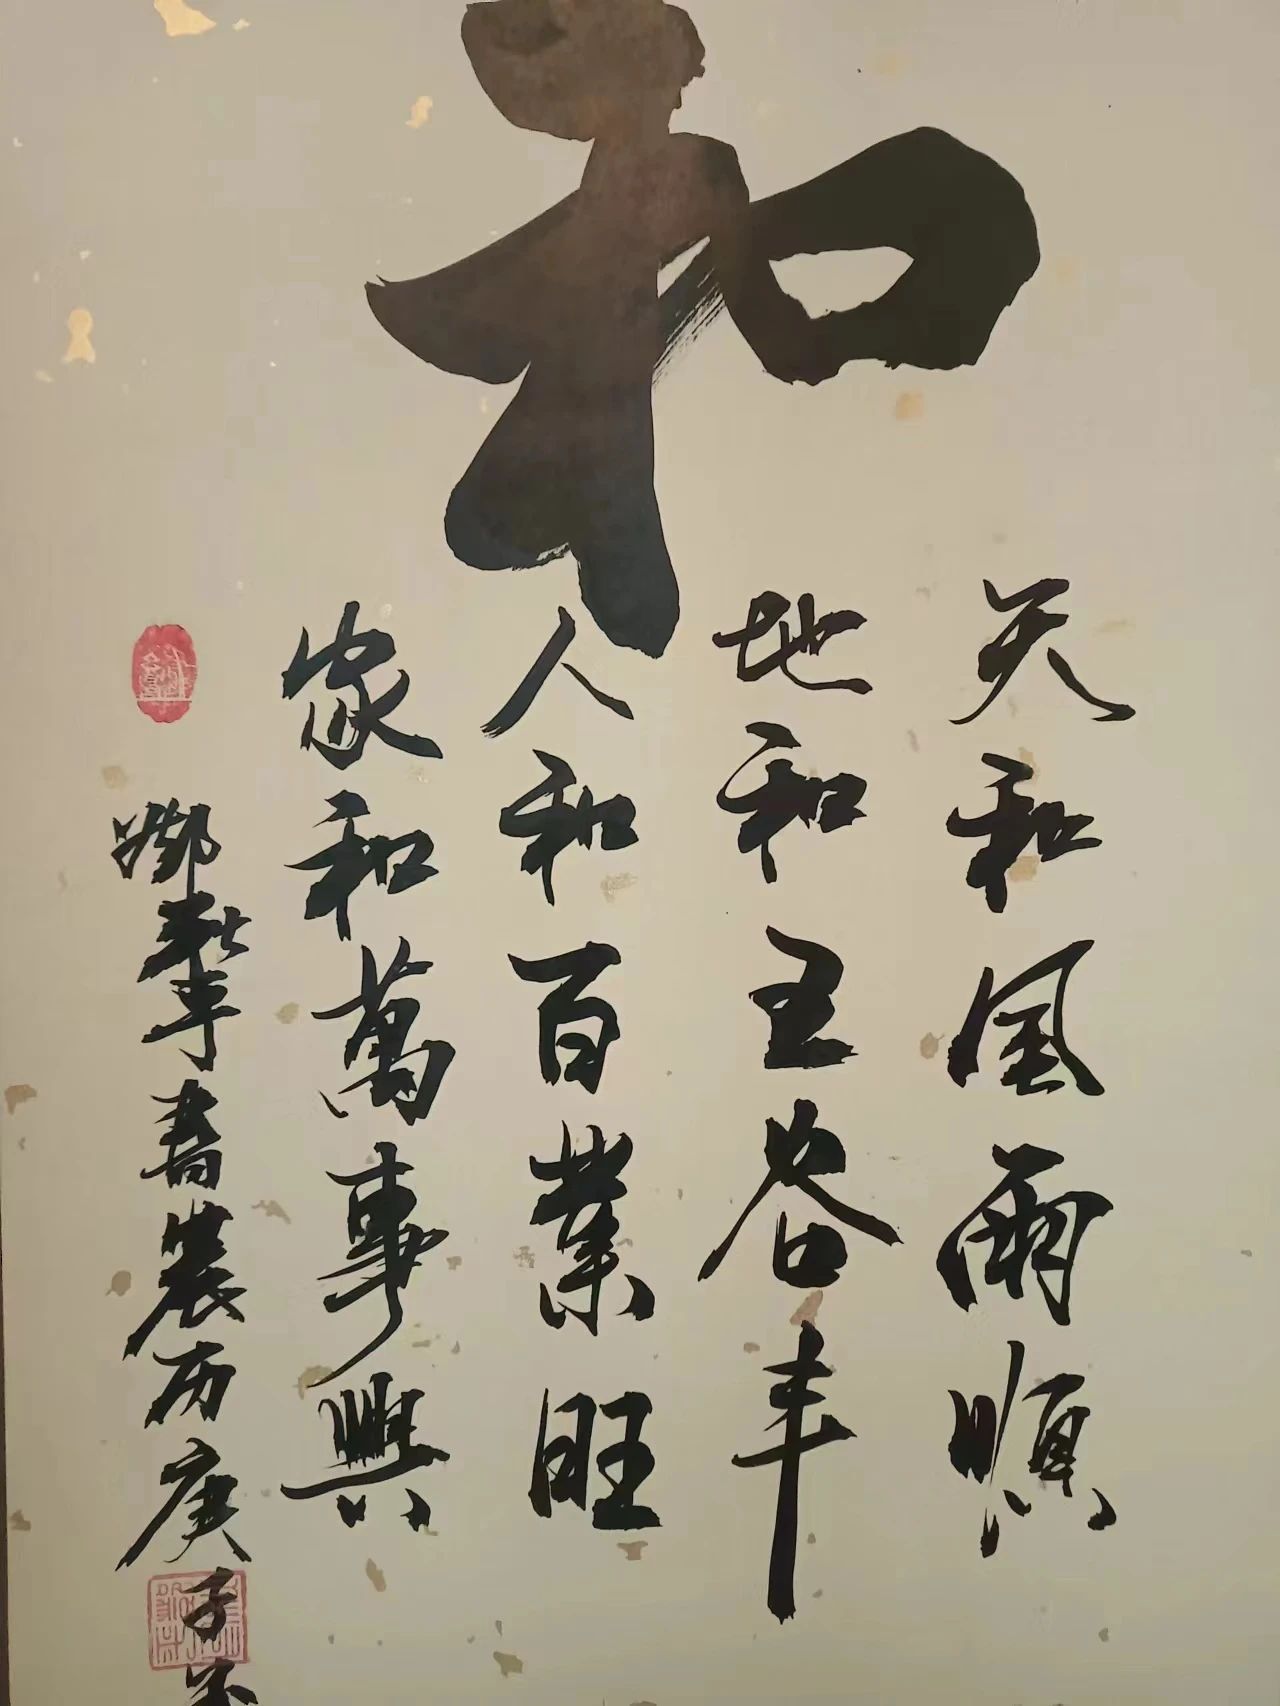 和
天和風雨順
地和五谷丰
人和百業旺
家和萬事興
書農历庚子